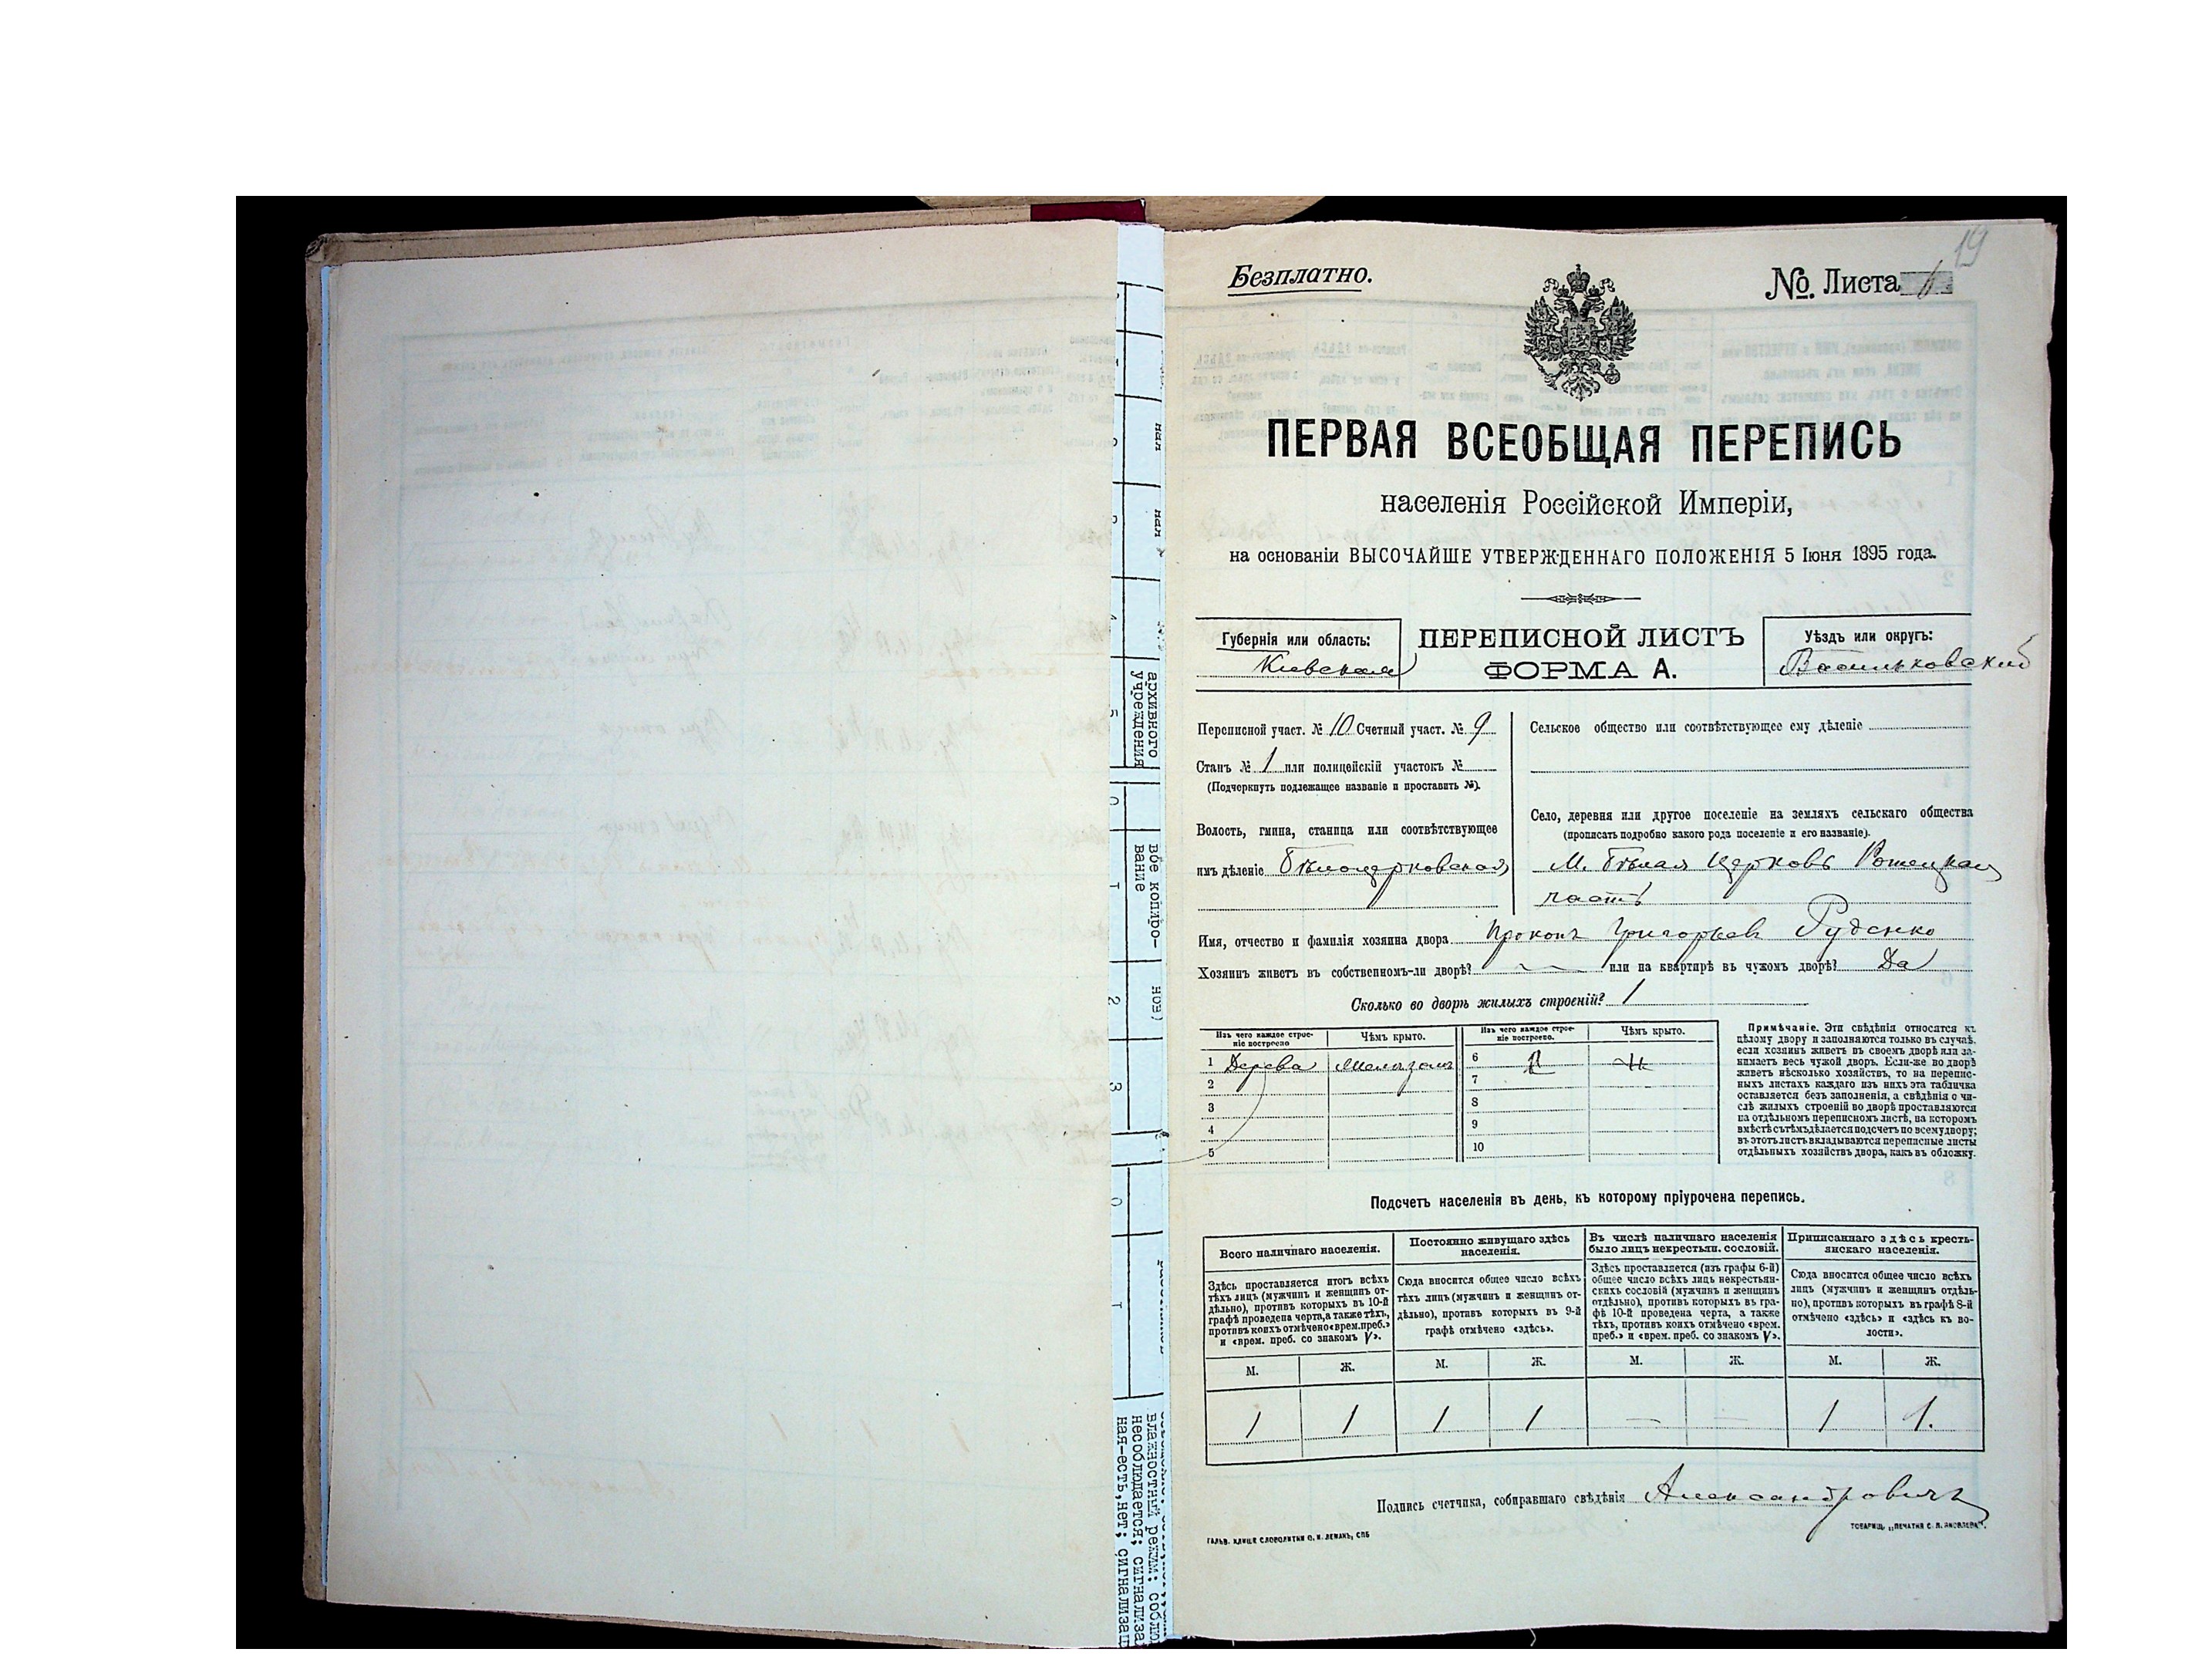 19
Безплатно.
№ Листа 6
ПЕРВАЯ ВСЕОБЩАЯ ПЕРЕПИСЬ
населенія Россійской Имперіи,
на основаніи ВЫСОЧАЙШЕ УТВЕРЖДЕННАГО ПОЛОЖЕНІЯ 5 Іюня 1895 года.
Губернія или область:
Кіевская
ПЕРЕПИСНОЙ ЛИСТЪ
ФОРМА А.
Уѣздъ или округъ:
Васильковскій
Переписной участ. № 10 Счетный участ. № 9
Станъ № 1 или полицейскій участокъ №
(Подчеркнуть подлежащее названіе и проставить №).
Волость, гмина, станица или соотвѣтствующее
имъ дѣленіе Бѣлоцерковская
Сельское общество или соотвѣтствующее ему дѣленіе
Село, деревня или другое поселеніе на земляхъ сельскаго общества
(прописать подробно какого рода поселеніе и его названіе).
М. Бѣлая Церковь
часть
Имя, отчество и фамилія хозяина двора Прокопъ Григорьев Руденко
Хозяинъ живетъ въ собственномъ-ли дворѣ? — или на квартирѣ въ чужомъ дворѣ? Да
Сколько во дворѣ жилыхъ строеній? 1
Изъ чего каждое строе-
ніе построено
Чѣмъ крыто.
Изъ чего каждое строе-
ніе построено.
Чѣмъ крыто.
1 Дерева
6
2
7
3
8
4
9
5
10
Примѣчаніе. Эти свѣдѣнія относятся къ
цѣлому двору и заполняются только въ случаѣ,
если хозяинъ живетъ въ своемъ дворѣ или за-
нимаетъ весь чужой дворъ. Если-же во дворѣ
живетъ нѣсколько хозяйствъ, то на перепис-
ныхъ листахъ каждаго изъ нихъ эта табличка
оставляется безъ заполненія, а свѣдѣнія о чи-
слѣ жилыхъ строеній во дворѣ проставляются
на отдѣльномъ переписномъ листѣ, на которомъ
вмѣстѣ съ тѣмъ дѣлается подсчетъ по всему двору;
въ этотъ листъ вкладываются переписные листы
отдѣльныхъ хозяйствъ двора, какъ въ обложку.
Подсчетъ населенія въ день, къ которому пріурочена перепись.
Всего наличнаго населенія.
Здѣсь проставляется итогъ всѣхъ
тѣхъ лицъ (мужчинъ и женщинъ от-
дѣльно), противъ которыхъ въ 10-й
графѣ проведена черта, а также тѣхъ,
противъ коихъ отмѣчено «врем. преб.»
и «врем. преб. со знакомъ V».
Постоянно живущаго здѣсь
населенія.
Сюда вносится общее число всѣхъ
тѣхъ лицъ (мужчинъ и женщинъ от-
дѣльно), противъ которыхъ въ 9-й
графѣ отмѣчено «здѣсь».
Въ числѣ наличнаго населенія
было лицъ некрестьян. сословій.
Здѣсь проставляется (изъ графы 6-й)
общее число всѣхъ лицъ некрестьян-
скихъ сословій (мужчинъ и женщинъ
отдѣльно), противъ которыхъ въ гра-
фѣ 10-й проведена черта, а также
тѣхъ, противъ коихъ отмѣчено «врем.
преб.» и «врем. преб. со знакомъ V».
Приписаннаго здѣсь кресть-
янскаго населенія.
Сюда вносится общее число всѣхъ
лицъ (мужчинъ и женщинъ отдѣль-
но), противъ которыхъ въ графѣ 8-й
отмѣчено «здѣсь» и «здѣсь къ во-
лости».
М. Ж. М. Ж. М. Ж. М. Ж.
1 1 1 1 — — 1 1.
Подпись счетчика, собиравшаго свѣдѣнія Александровичъ
ГАЛЬВ. КЛИШЕ СЛОВОЛИТНИ О. И. ЛЕМАНЪ, СПБ
ТОВАРИЩ. „ПЕЧАТНЯ С. П. ЯКОВЛЕВА“.
архивного
учреждения
вое копиро-
вание
влажностный режим: соблю
несоблюдается; сигнализа
ная-есть,нет; сигнализац